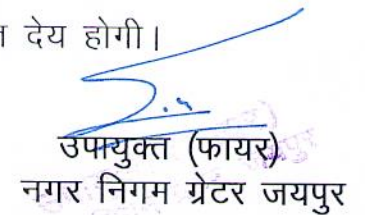 देय होगी।
उपायुक्त (फायर)
नगर निगम ग्रेटर जयपुर